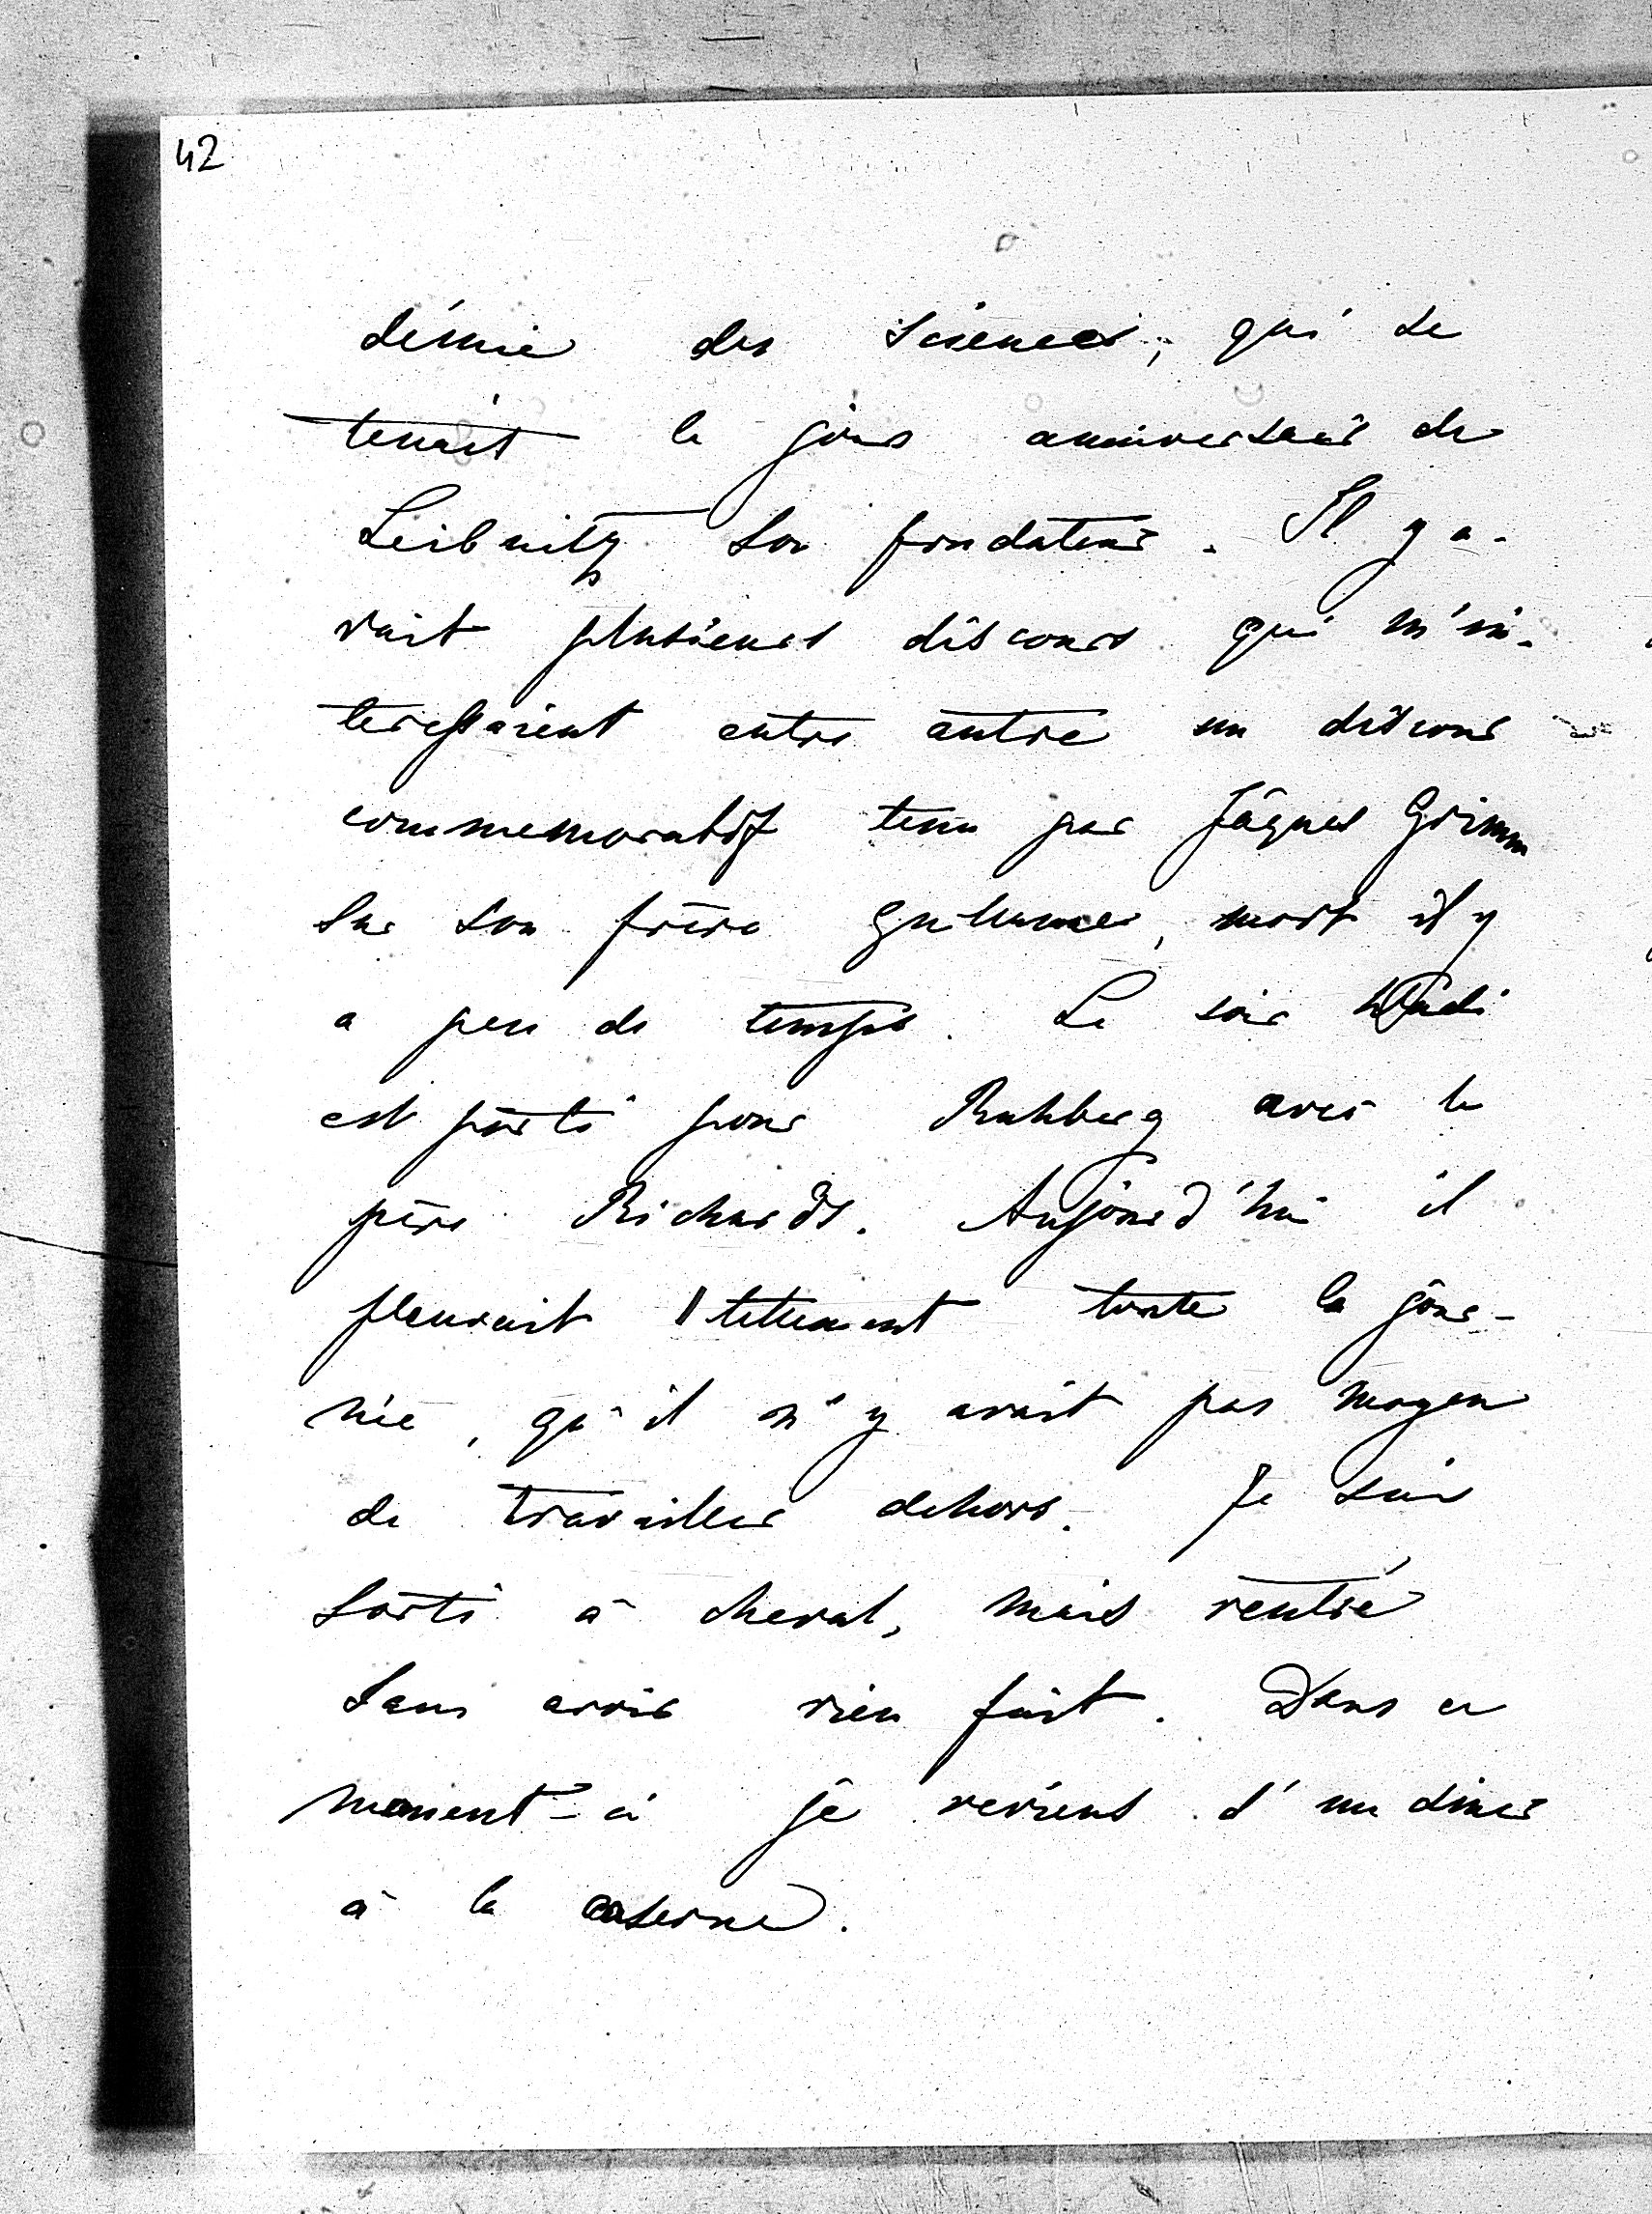 42
démie des sciences, qui se
tenait le jour anniversair de
Leibnitz son fondateur. Il y a-
vait plusieurs discours qui m'in-
teressaient entre autre un discour
commemoratif tenu par Jâques Grimm
sur son frère Guillaume, mort il y
a peu de temps. Le soir Wladi
est parti pour Ruhberg avec le
père Richards. Aujourd'hui il
pleuvait tellement toute la jour-
née, qu'il n'y avait pas moyen
de travailler dehors. Je suis
sorti à cheval, mais rentré
sans avoir rien fait. Dans ce
moment-ci je reviens d'un diner
à la caserne.